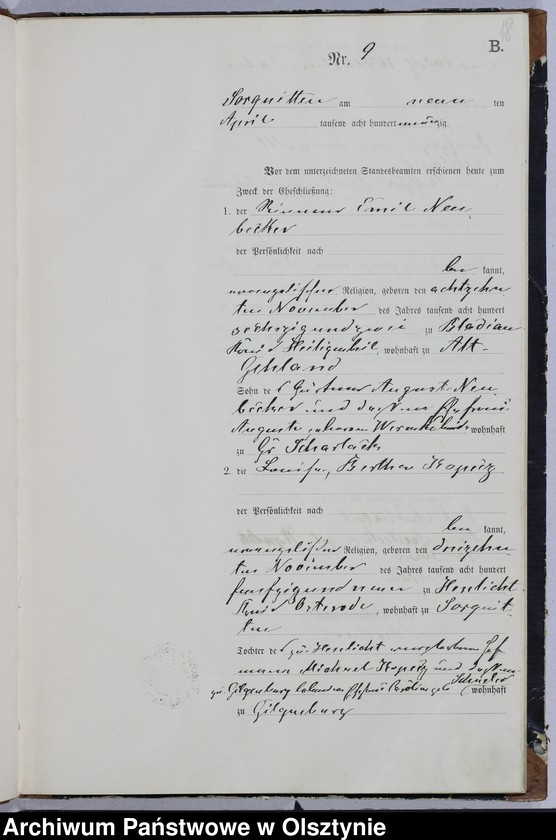 B.
Nr. 9
Sorquitten am neun ten
April tausend acht hundert neunzig.
Vor dem unterzeichneten Standesbeamten erschienen heute zum
Zweck der Eheschließung:
1. der Emil Neu
becker
der Persönlichkeit nach
be kannt,
evangelischer Religion, geboren den achtzehn
ten November des Jahres tausend acht hundert
sechszigundzwei zu Bladiau
Kreis Heiligenbeil, wohnhaft zu Alt-
Gehland
Sohn des Gärtners August Neu
becker und dessen Ehefrau
Auguste geborene wohnhaft
zu Gr Scharlack
2. die Louise, Bertha Kopetz
der Persönlichkeit nach
be kannt,
evangelischer Religion, geboren den dreizehn
ten November des Jahres tausend acht hundert
fünfzigundneun zu Henlicht
Kreis Osterode, wohnhaft zu Sorquit-
ten
Tochter des zu Henlicht verstorbenen
Michael Kopetz und dessen
zu Gilgenburg lebenden Ehefrau geb wohnhaft
zu Gilgenburg
Archiwum Państwowe w Olsztynie